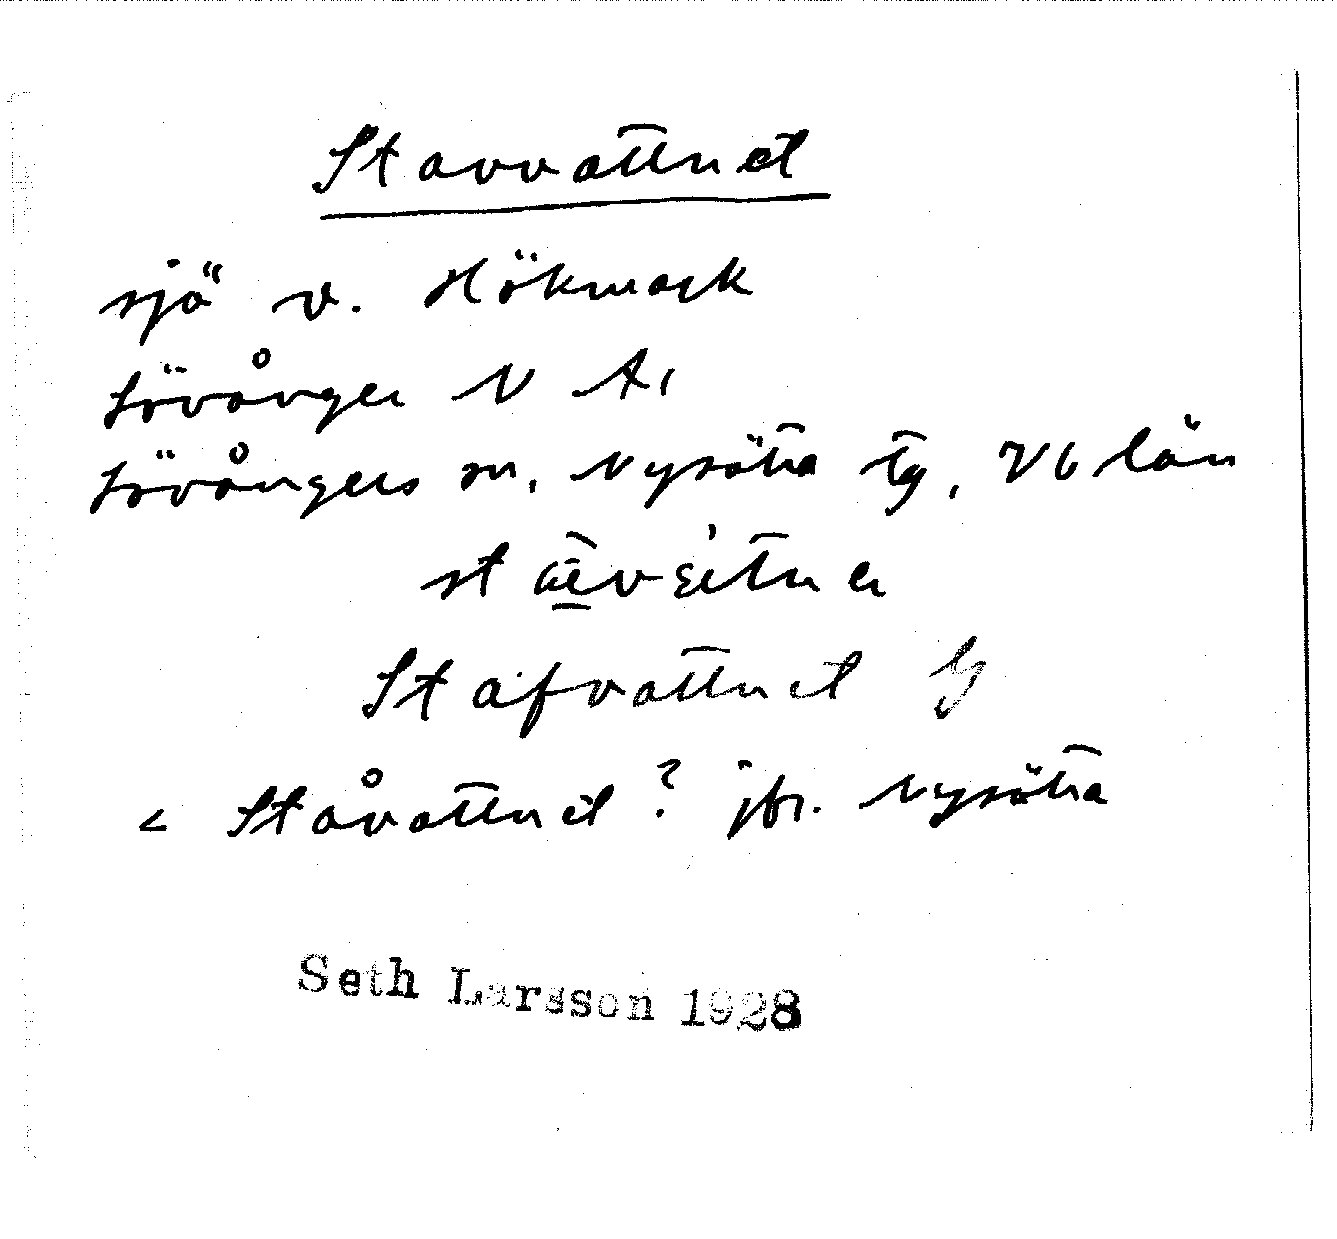 Stavvattnet
sjö v. Hökmark
Lövånger N A1
Lövångers sn, Nysätra tg, Vb län
Stafvattnet
< Ståvattnet? jfr. Nysätra
Seth Larsson 1928